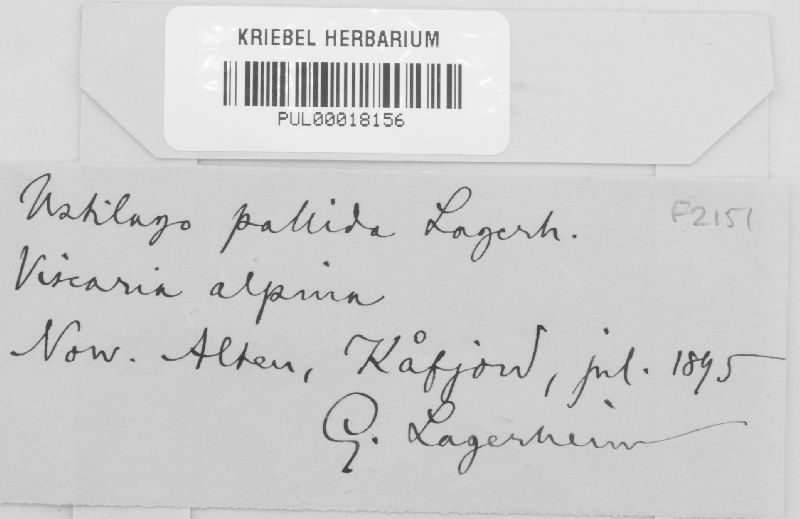 KRIEBEL HERBARIUM
PUL00018156
F2151
Ustilago pallida Lagerh.
Viscaria alpina
Norv. Alten, Kåfjord, jul. 1895
G. Lagerheim